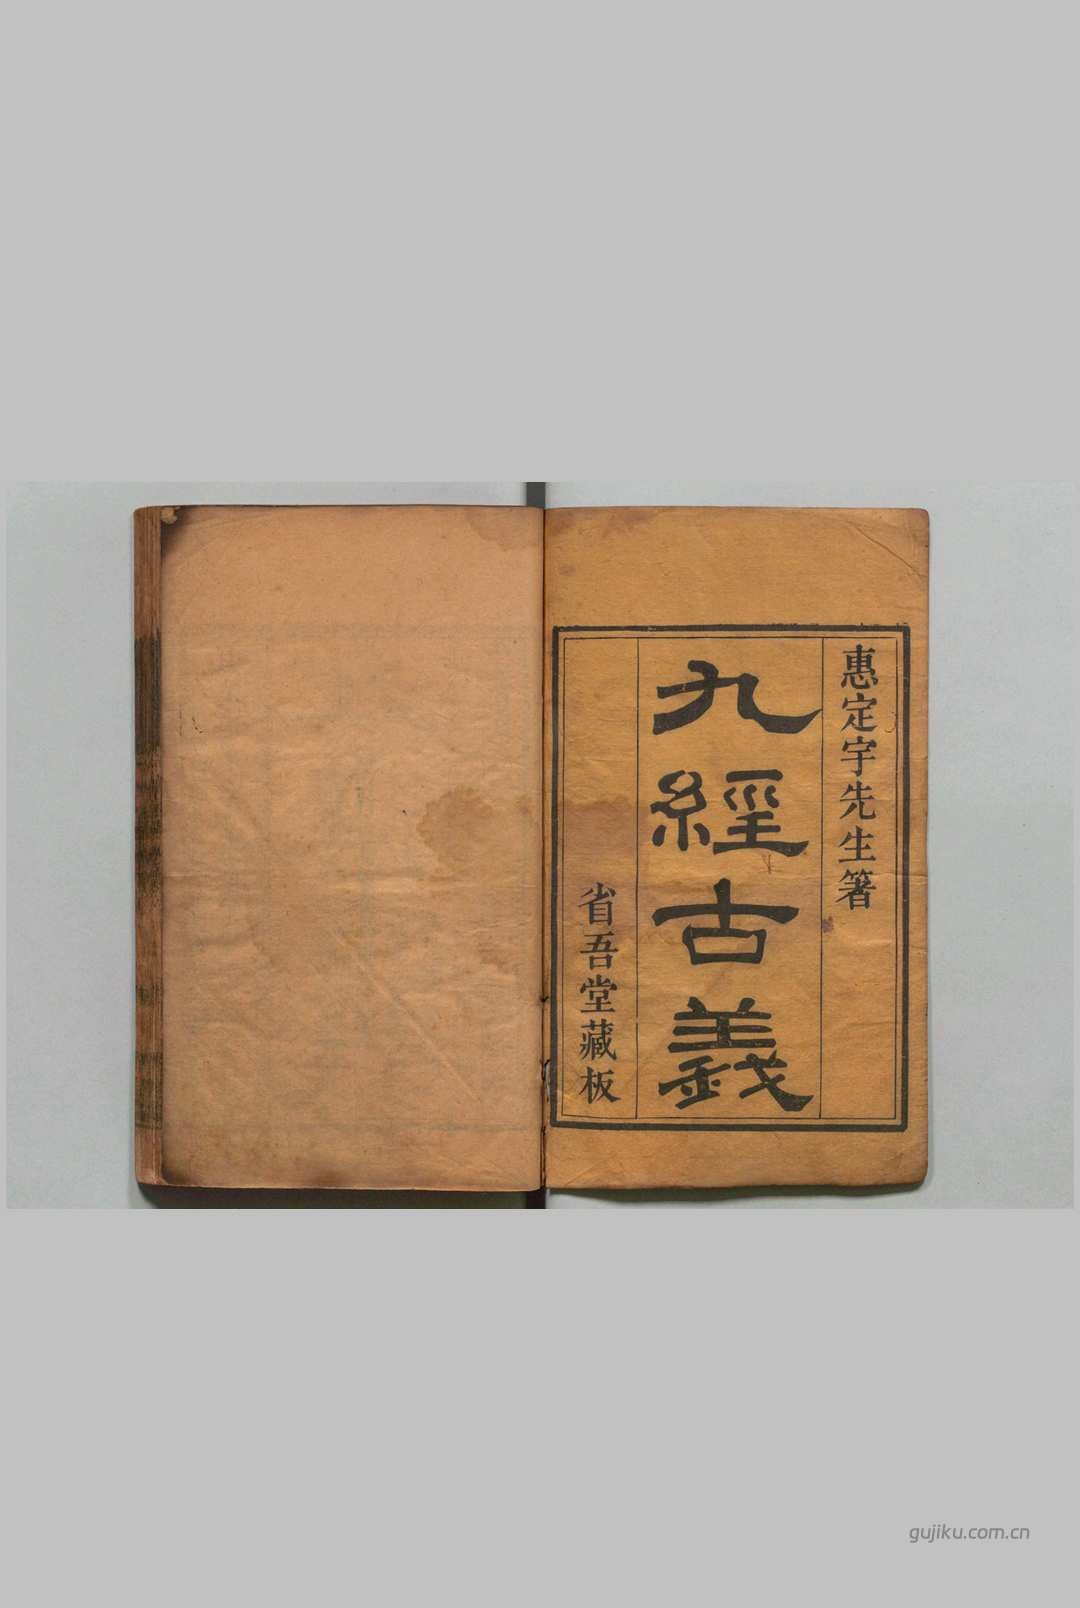 惠定宇先生箸
九經古義
省吾堂藏板
gujiku.com.cn